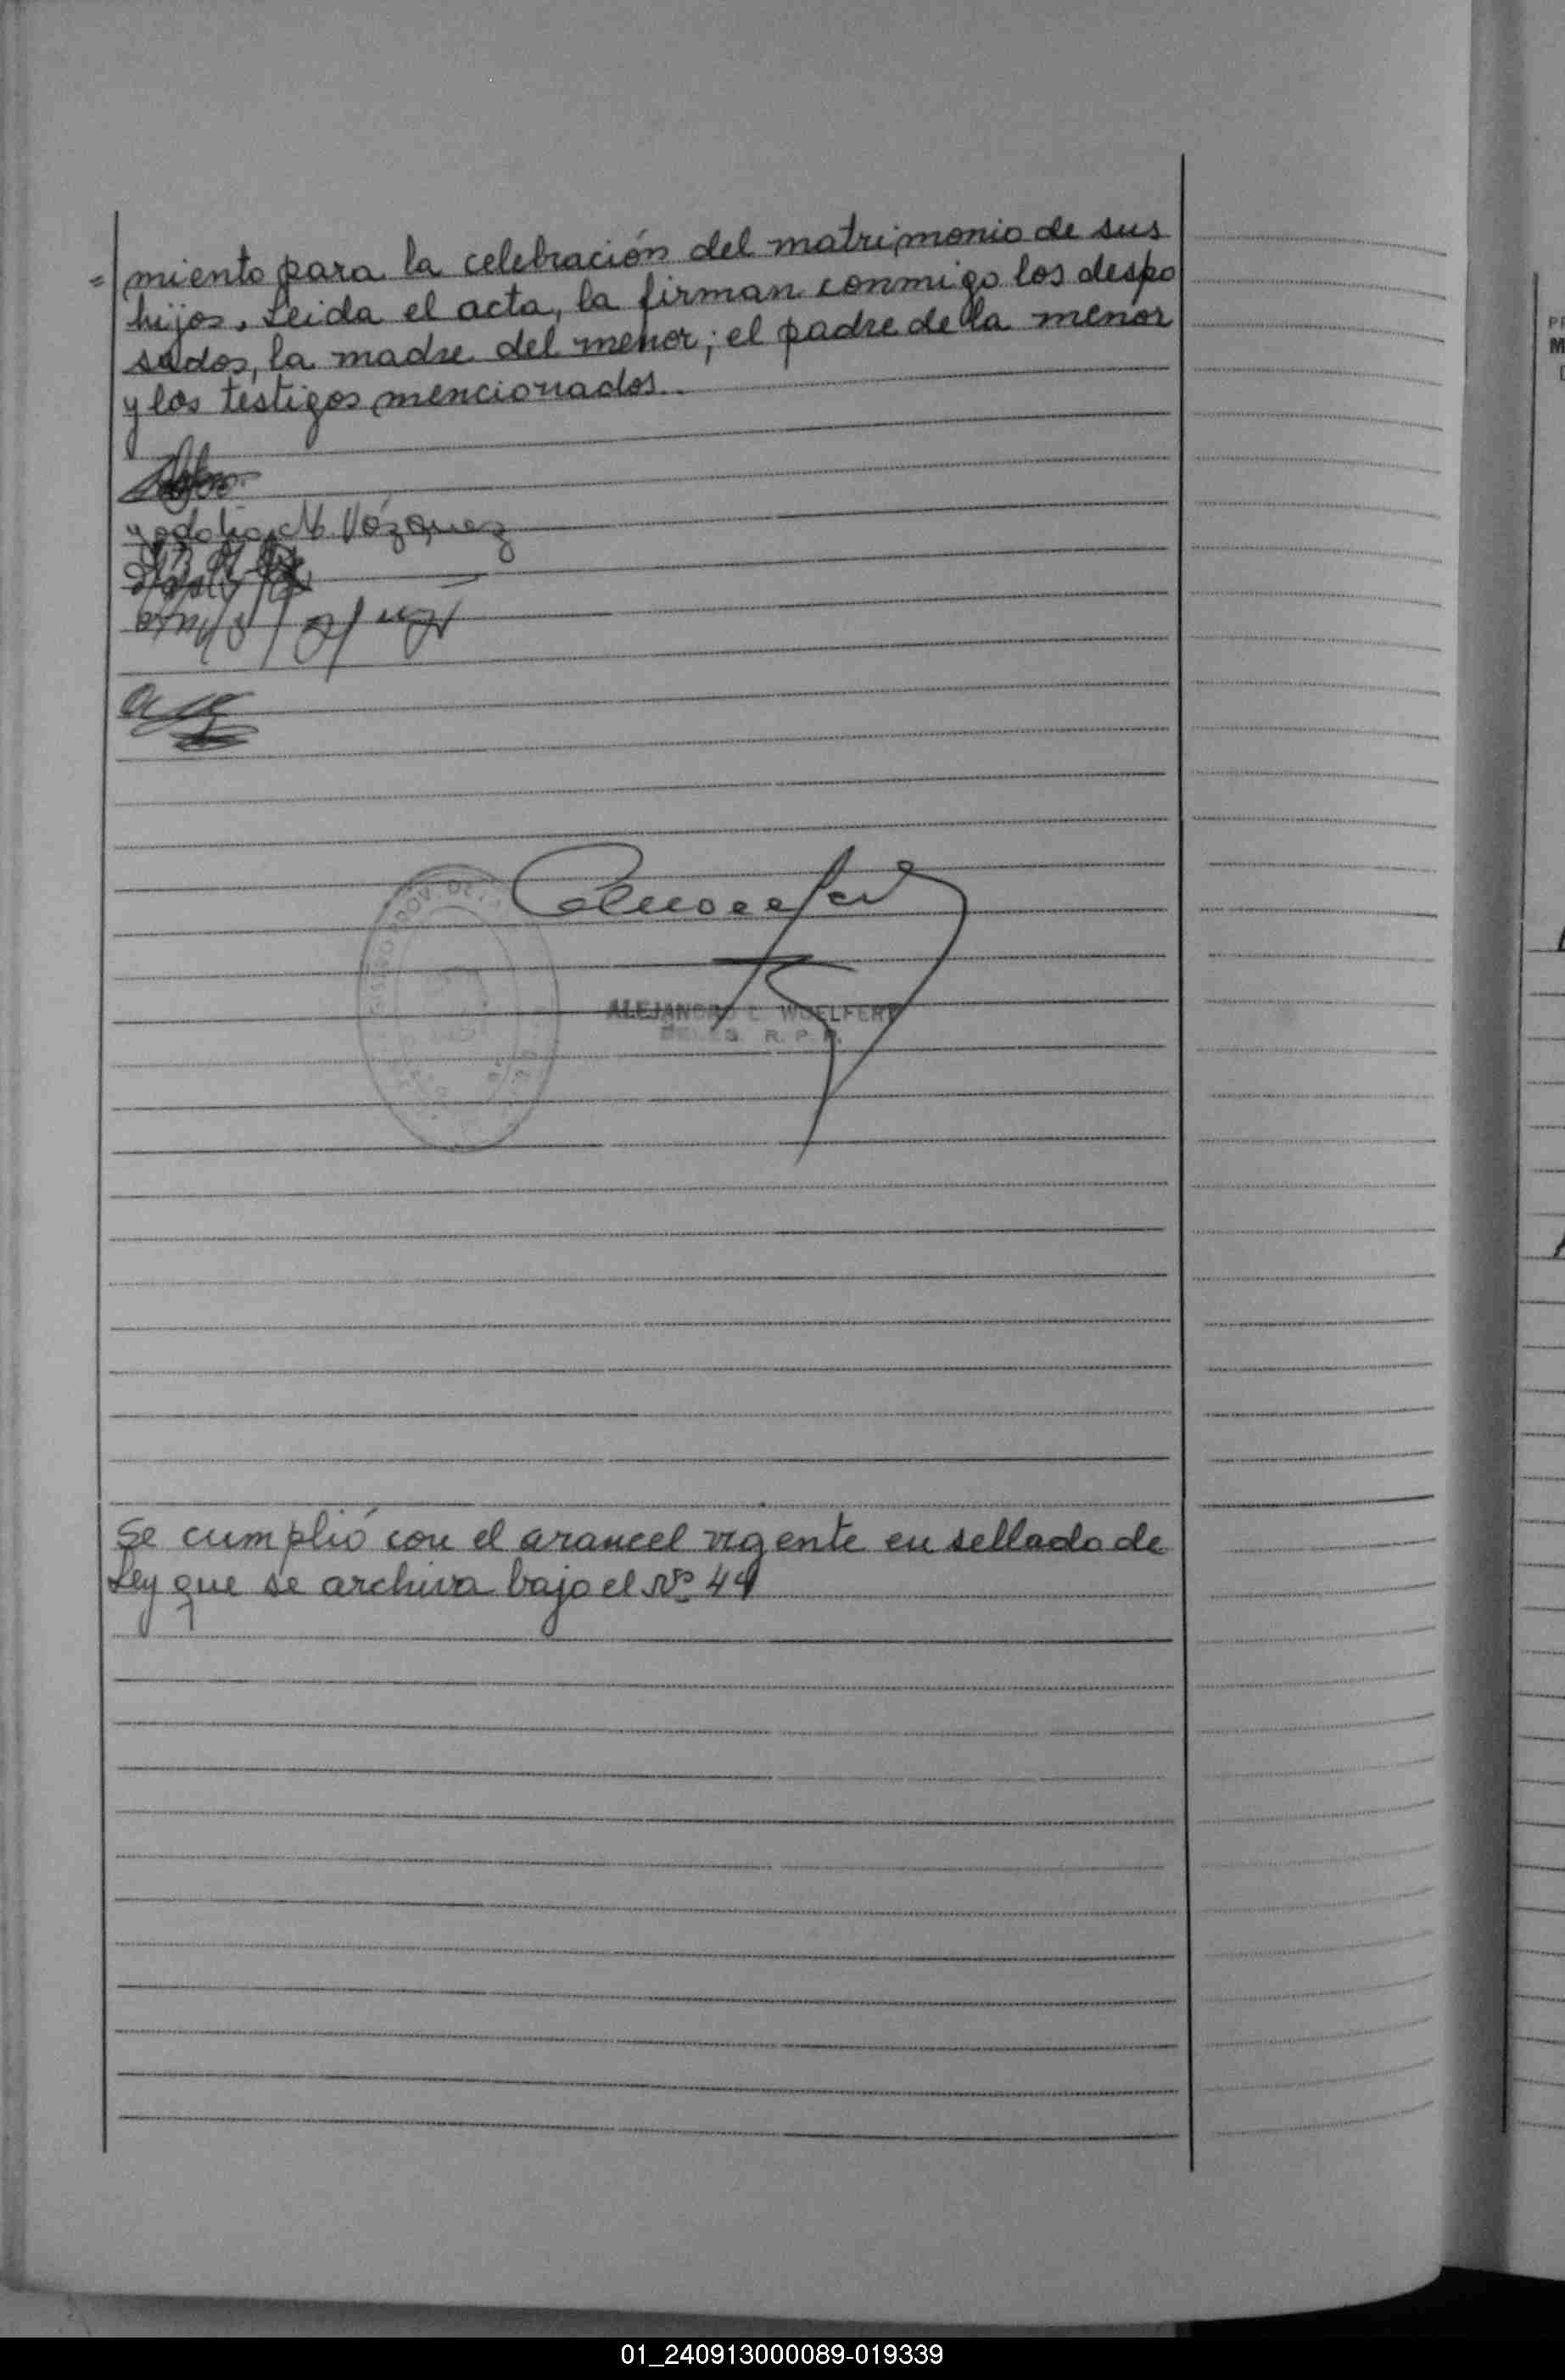 = miento para la celebración del matrimonio de sus
hijos. Leida el acta, la firman conmigo los despo
sados, la madre del menor; el padre de la menor
y los testigos mencionados.
M. Vázquez
ALEJANDRO E. WOELFERT
R. P. P.
Se cumplió con el arancel vigente en sellado de
Ley que se archiva bajo el Nº 44
01_240913000089-019339